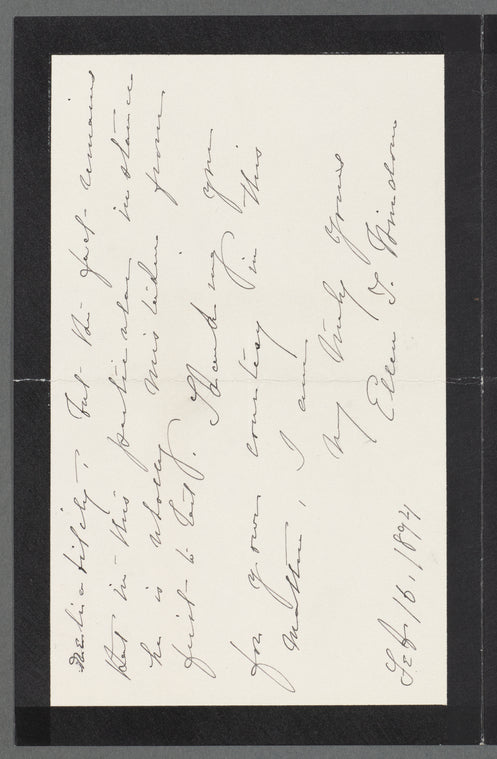 but the fact remains
that in this particular instance
he is wholly mistaken from
first to last. Thanking you
for your courtesy in this
matter, I am
Very truly yours
Ellen T. Windom
Feb. 16, 1894